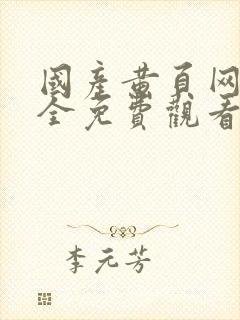 國產黃頁网
全免費觀看
李元芳